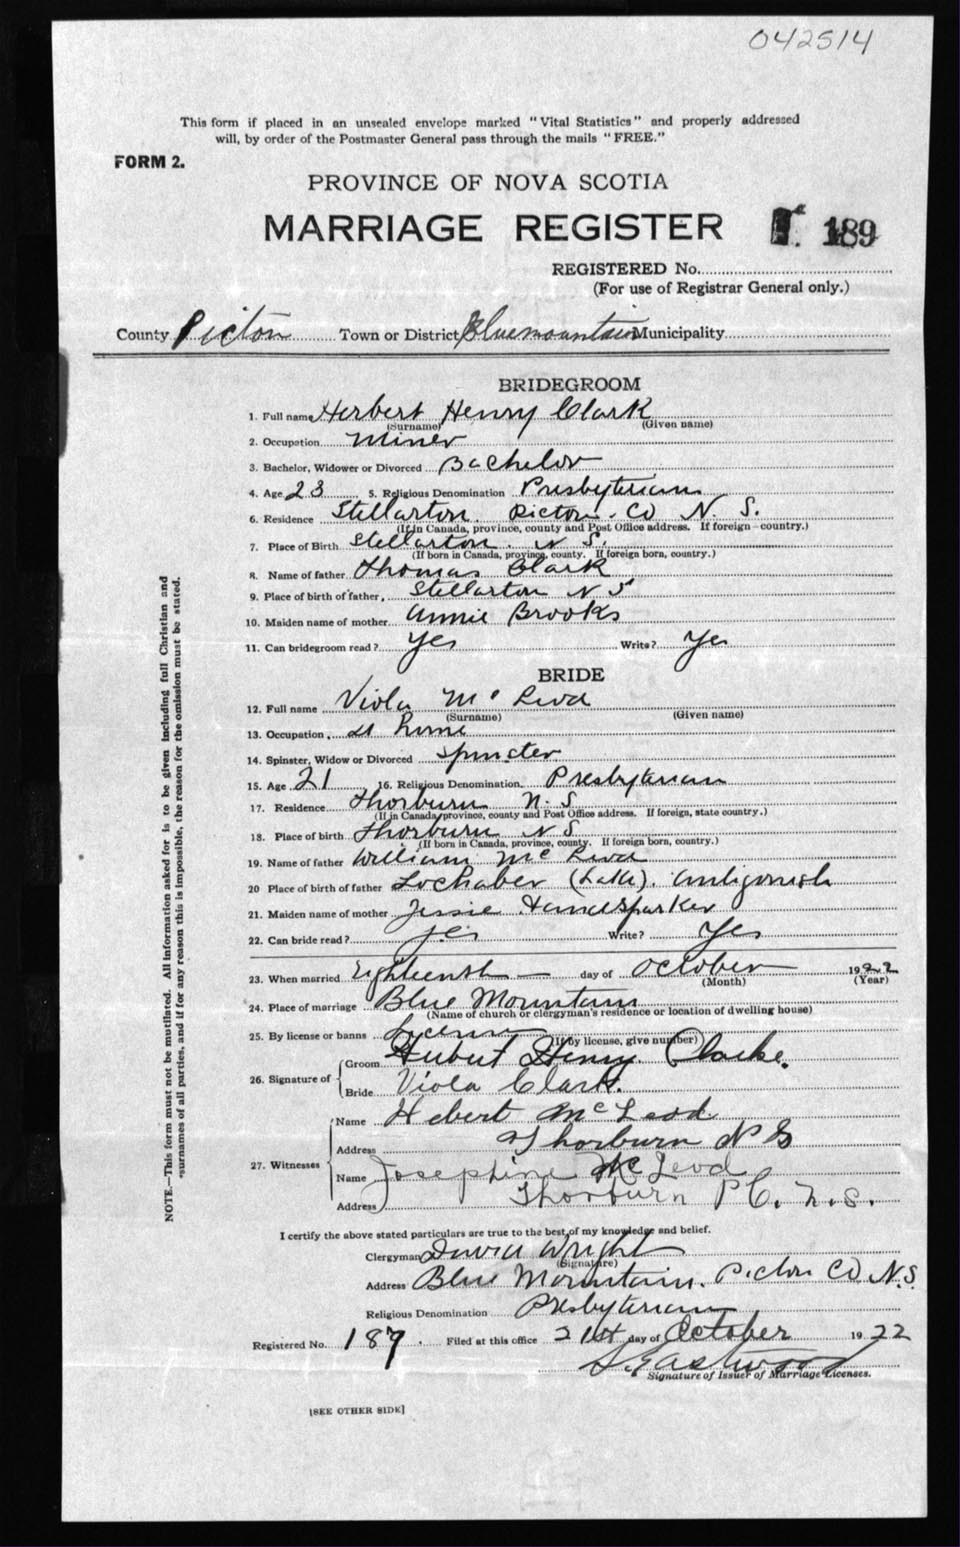 042514
This form if placed in an unsealed envelope marked "Vital Statistics" and properly addressed
will, by order of the Postmaster General pass through the mails "FREE."
FORM 2.
PROVINCE OF NOVA SCOTIA
MARRIAGE REGISTER 189
REGISTERED No.
(For use of Registrar General only.)
County Picton Town or District Bluemountain Municipality
BRIDEGROOM
1. Full name Herbert Henry Clark
(Surname) (Given name)
2. Occupation Miner
3. Bachelor, Widower or Divorced Bachelor
4. Age 23 5. Religious Denomination Presbyterian
6. Residence Stellarton. Picton. Co N. S.
(If in Canada, province, county and Post Office address. If foreign-country.)
7. Place of Birth Stellarton. N S.
(If born in Canada, province, county. If foreign born, country.)
8. Name of father Thomas Clark
9. Place of birth of father, Stellarton N S
10. Maiden name of mother Annie Brooks
11. Can bridegroom read? Yes Write? Yes
BRIDE
12. Full name Viola Mc Leod
(Surname) (Given name)
13. Occupation, at home
14. Spinster, Widow or Divorced Spinster
15. Age 21 16. Religious Denomination Presbyterian
17. Residence Thorburn N. S
(If in Canada, province, county and Post Office address. If foreign, state country.)
18. Place of birth Thorburn N S
(If born in Canada, province, county. If foreign born, country.)
19. Name of father William Mc Leod
20 Place of birth of father Lochaber (Lake). Antigonish
21. Maiden name of mother Jessie
22. Can bride read? yes Write? Yes
23. When married Eighteenth — day of October 1922
(Month) (Year)
24. Place of marriage Blue Mountain
(Name of church or clergyman's residence or location of dwelling house)
25. By license or banns License
(If by license, give number)
26. Signature of
Groom Hubert Henry Clarke.
Bride Viola Clark.
27. Witnesses
Name Hebert McLeod
Address Thorburn N S
Name Josephine McLeod
Address Thorburn P C. N. S.
I certify the above stated particulars are true to the best of my knowledge and belief.
Clergyman David Wright
(Signature)
Address Blue Mountain. Picton CO N.S.
Religious Denomination Presbyterian
Registered No. 189. Filed at this office 21st day of October 1922
S. Eastwood
Signature of Issuer of Marriage Licenses.
[SEE OTHER SIDE]
NOTE.—This form must not be mutilated. All information asked for is to be given including full Christian and
surnames of all parties, and if for any reason this is impossible, the reason for the omission must be stated.